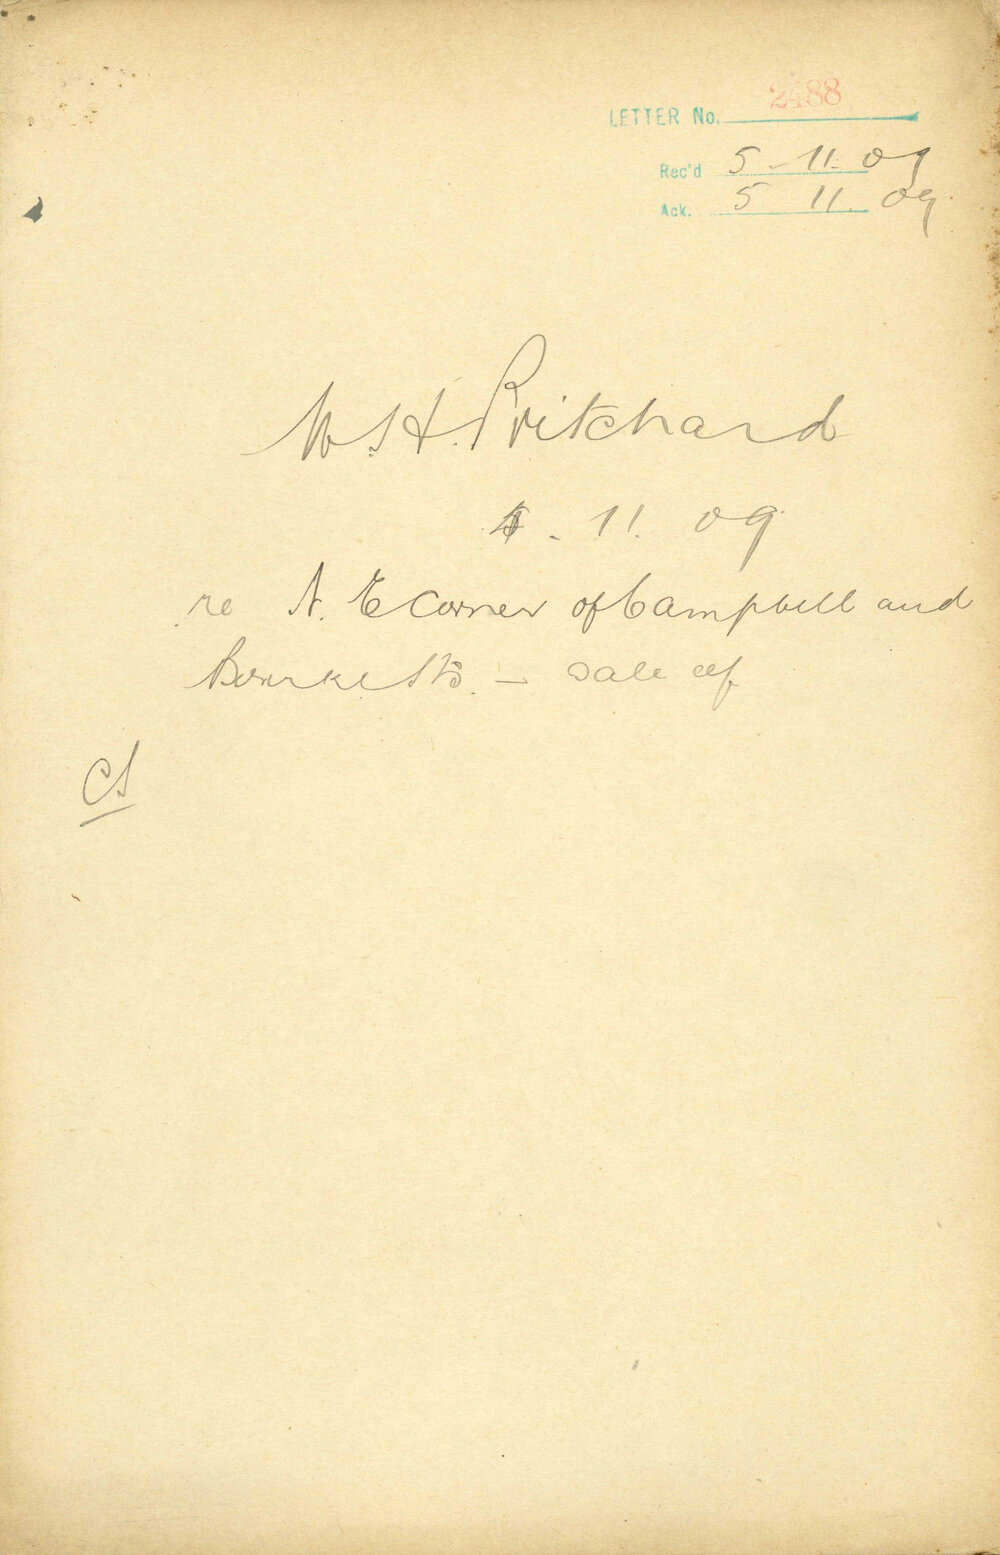 LETTER No. 2488
Rec'd 5-11.09
Ack. 5 11.09
W.H. Pritchard
. 11. 09
re N. E corner of Campbell and
Bourke Sts. - sale of
CS